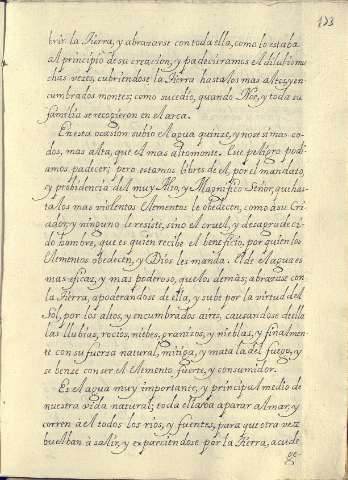 133
brir la Tierra, y abrazarse con toda ella, como lo estaba
al principio de su creacion, y padecieramos el dilubio mu
chas vezes, cubriendose la Tierra hasta los mas altos, y en
cumbrados montes; como sucedio, quando Noè, y toda su
familia se recogieron en el arca.
En esta ocasion subio el agua quinze, y no se si mas co-
dos, mas alta, que el mas alto monte. Este peligro podi
amos padecer; pero estamos libres de el, por el mandato,
y probidencia del muy Alto, y Magnifico Señor, que has
ta los mas violentos Elementos le obedecen, como à su Cri
ador, y ninguno le resiste, sino el cruel, y desagradeci-
do hombre, que es quien recibe el beneficio, por quien los
Elementos obedecen, y Dios les manda. El de el agua es
mas eficaz, y mas poderoso, que los demàs; abrazase con
la Tierra, apoderandose de ella, y sube por la virtud del
Sol, por los altos, y encumbrados aires, causandose de ella
las llubias, rocios, niebes, granizos, y nieblas, y finalmen
te con su fuerza natural, mitiga, y mata la del fuego, y
se bense con ser el Elemento, fuerte, y consumidor.
Es el agua muy importante, y principal medio de
nuestra vida natural; toda ella va a parar al mar, y
corren a el todos los rios, y fuentes, para que otra vez
buelban à salir, y esparciendose por la Tierra, acude